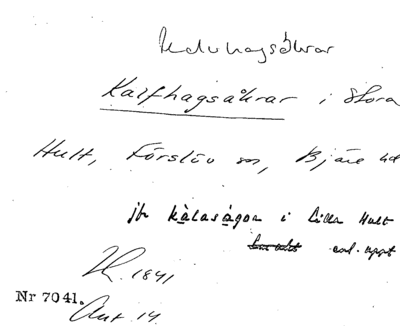 Kalfhagsåkrar i Stora
Hult, Förslöv sn, Bjäre hd
jfr kàlasågor i Lilla Hult
enl. uppt
1841
Nr 7041.
Akt 14